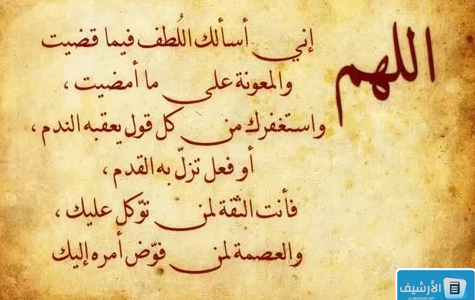 اللهم
إني أسألك اللطف فيما قضيت
والمعونة على ما أمضيت ،
واستغفرك من كل قول يعقبه الندم ،
أو فعل تزلّ به القدم ،
فأنت الثقة لمن توّكل عليك ،
والعصمة لمن فوّض أمره إليك
الأرشيف